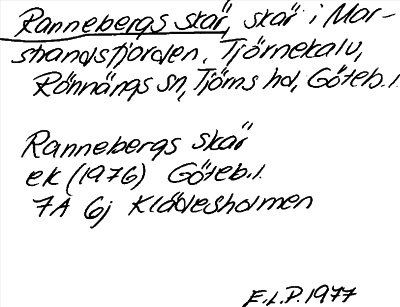 Rannebergs skär, skär i Mar-
shandsfjorden, Tjörnekalv,
Rönnängs sn, Tjörns hd, Göteb.l.
Rannebergs skär
ek (1976) Göteb.l.
7A 6j Klädesholmen
E.L.P. 1977